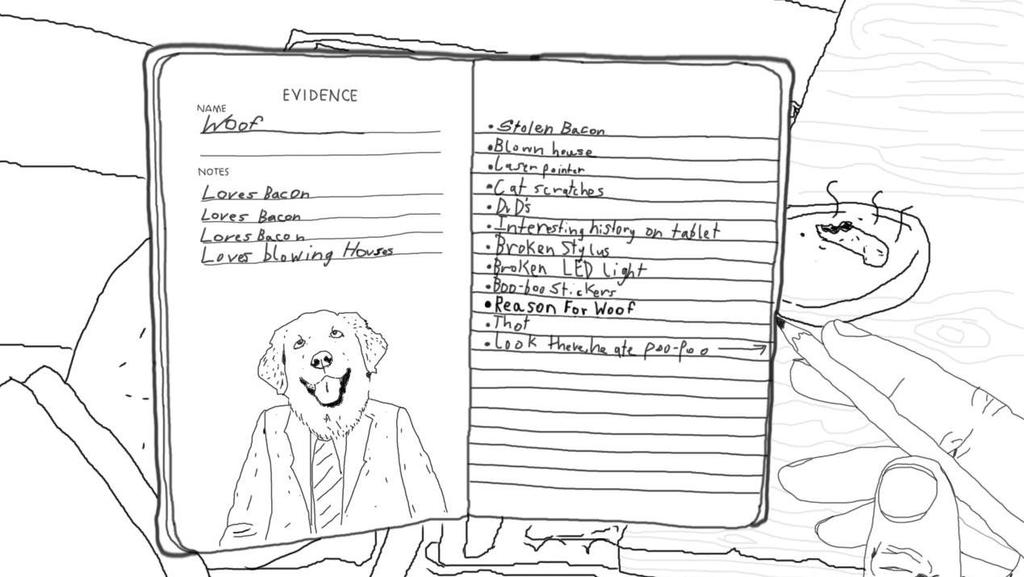 EVIDENCE
NAME
Woof
NOTES
Loves Bacon
Loves Bacon
Loves Bacon
Loves blowing Houses
• Stolen Bacon
• Blown house
• Laser pointer
• Cat scratches
• DVD's
• Interesting history on tablet
• Broken Stylus
• Broken LED light
• Boo-boo stickers
• Reason For Woof
• Thot
• Look there, he ate poo-poo →